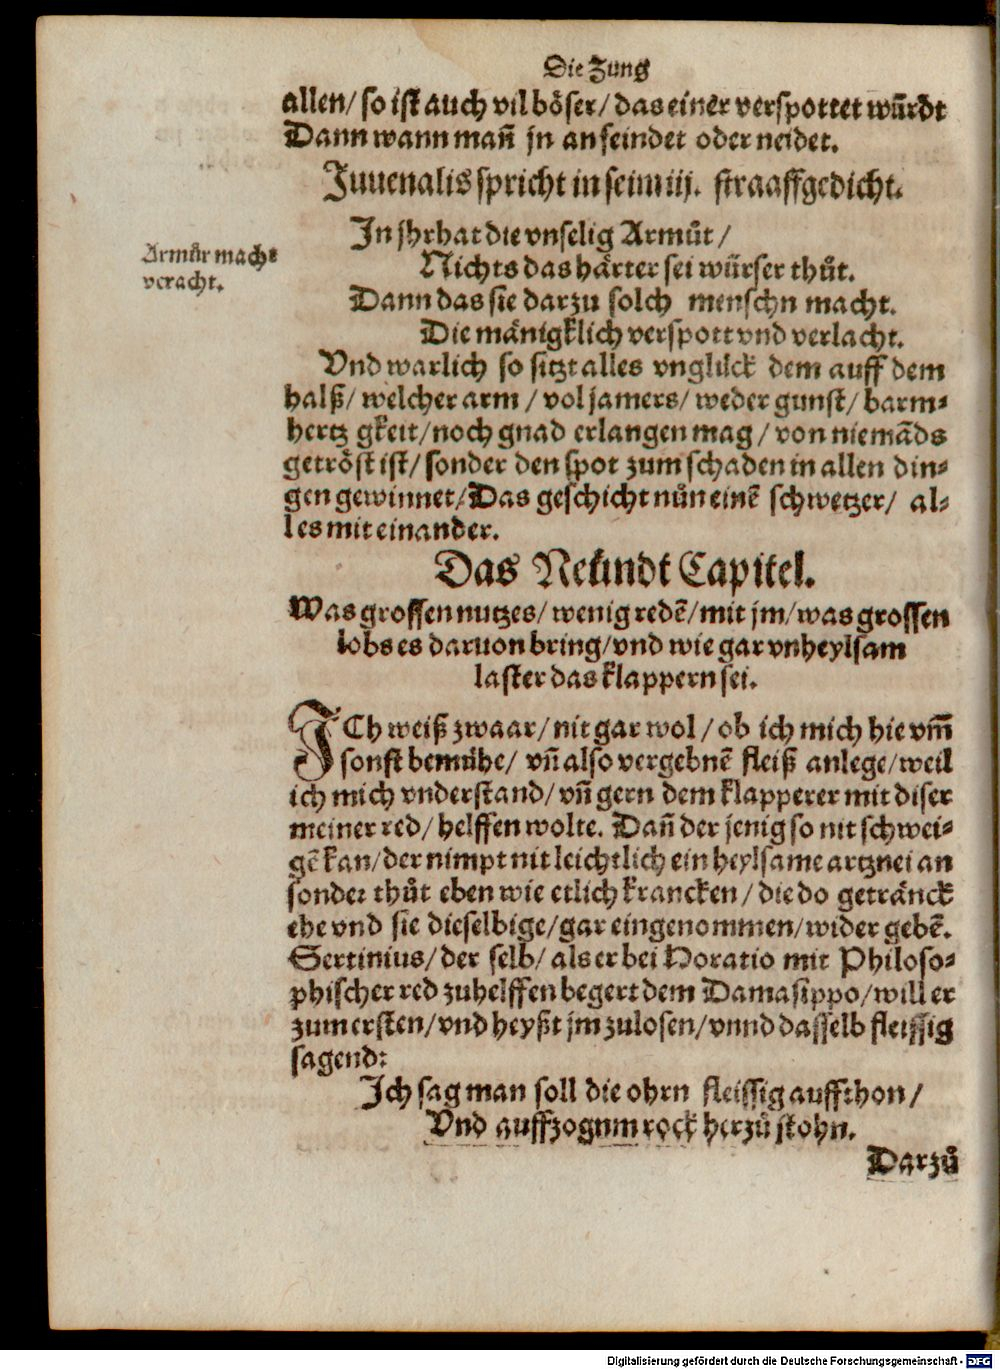 Die Zung
allen/ so ist auch vil böser/ das einer verspottet wūrdt
Dann wann mañ jn anfeindet oder neidet.
Juuenalis spricht in seim iij. straaffgedicht.
In jhr hat die vnselig Armůt/
Armůt macht
veracht.
Nichts das härter sei würser thůt.
Dann das sie darzu solch menschn macht.
Die mänigklich verspott vnd verlacht.
Vnd warlich so sitzt alles vnglück dem auff dem
halß/ welcher arm/ vol jamers/ weder gunst/ barm-
hertzigkeit/ noch gnad erlangen mag/ von niemāds
getröst ist/ sonder den spot zum schaden in allen din-
gen gewinnet/ Das geschicht nůn einē schwetzer/ al-
les mit einander.
Das Neündt Capitel.
Was grossen nutzes/ wenig redē/ mit jm/ was grossen
lobs es daruon bring/ vnd wie gar vnheylsam
laster das klappern sei.
ICh weiß zwaar/ nit gar wol/ ob ich mich hie vm̄
sonst bemühe/ vñ also vergebnē fleiß anlege/ weil
ich mich vnderstand/ vñ gern dem klapperer mit diser
meiner red/ helffen wolte. Dañ der jenig so nit schwei-
gē kan/ der nimpt nit leichtlich ein heylsame artznei an
sonder thůt eben wie etlich krancken/ die do getränck
ehe vnd sie dieselbige/ gar eingenommen/ wider gebē.
Sertinius/ der selb/ als er bei Horatio mit Philoso-
phischer red zuhelffen begert dem Damasippo/ will er
zum ersten/ vnd heyßt jm zulosen/ vnnd dasselb fleissig
sagend:
Ich sag man soll die ohrn fleissig auffthon/
Vnd auffzognm rock herzů stohn.
Darzů
Digitalisierung gefördert durch die Deutsche Forschungsgemeinschaft - DFG